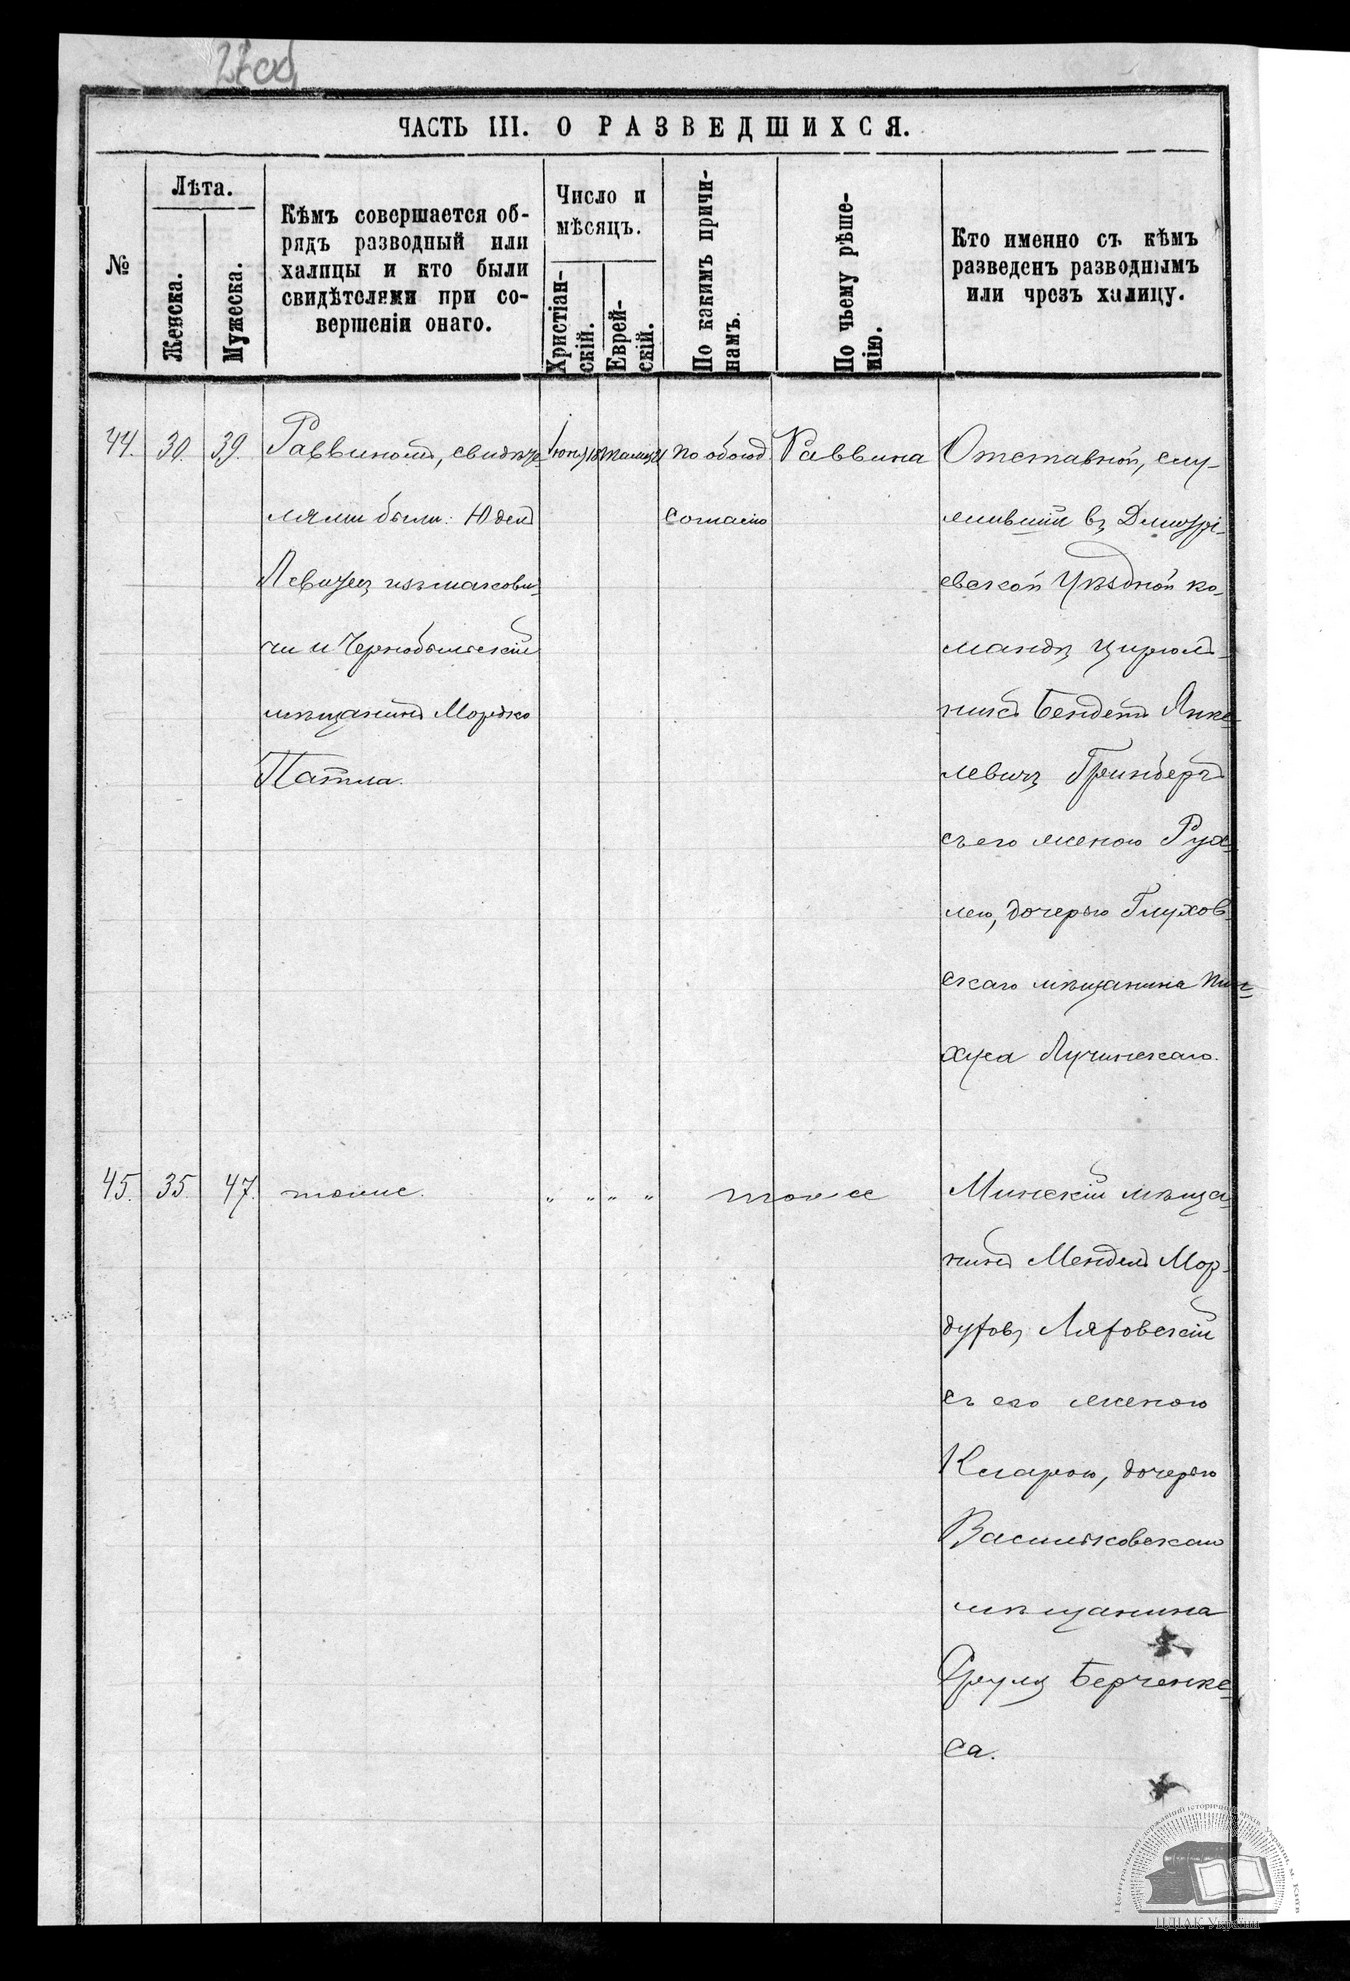 27об
ЧАСТЬ III. О РАЗВЕДШИХСЯ.
№
Лѣта.
Женска.
Мужеска.
Кѣмъ совершается об-
рядъ разводный или
халицы и кто были
свидѣтелями при со-
вершеніи онаго.
Число и
мѣсяцъ.
Христіан-
скій.
Еврей-
скій.
По какимъ причи-
намъ.
По чьему рѣше-
нію.
Кто именно съ кѣмъ
разведенъ разводнымъ
или чрезъ халицу.
44. 30. 39.
Раввиномъ, свидѣте-
лями были: Юдель
чи и Чернобыльскій
мѣщанинъ Мордко
Патла.
Іюня
По обоюд.
согласію
Раввина
Отставной, слу-
жившій въ Дмитрі-
евской Уѣздной ко-
мандѣ цирюль-
никъ Бендетъ Янке-
левичъ Гринбергъ
съ его женою Рух-
лею, дочерью Глухов-
скаго мѣщанина Пин-
хуса Лучинскаго.
45. 35. 47.
тоже.
" " " "
тоже
Минскій мѣща-
нинъ Мендель Мор-
духовъ Ляховскій
съ его женою
Кларою, дочерью
Васильковскаго
мѣщанина
Сруля Берченке-
са.
Центральний державний історичний архів України, м. Київ
ЦДІАК України